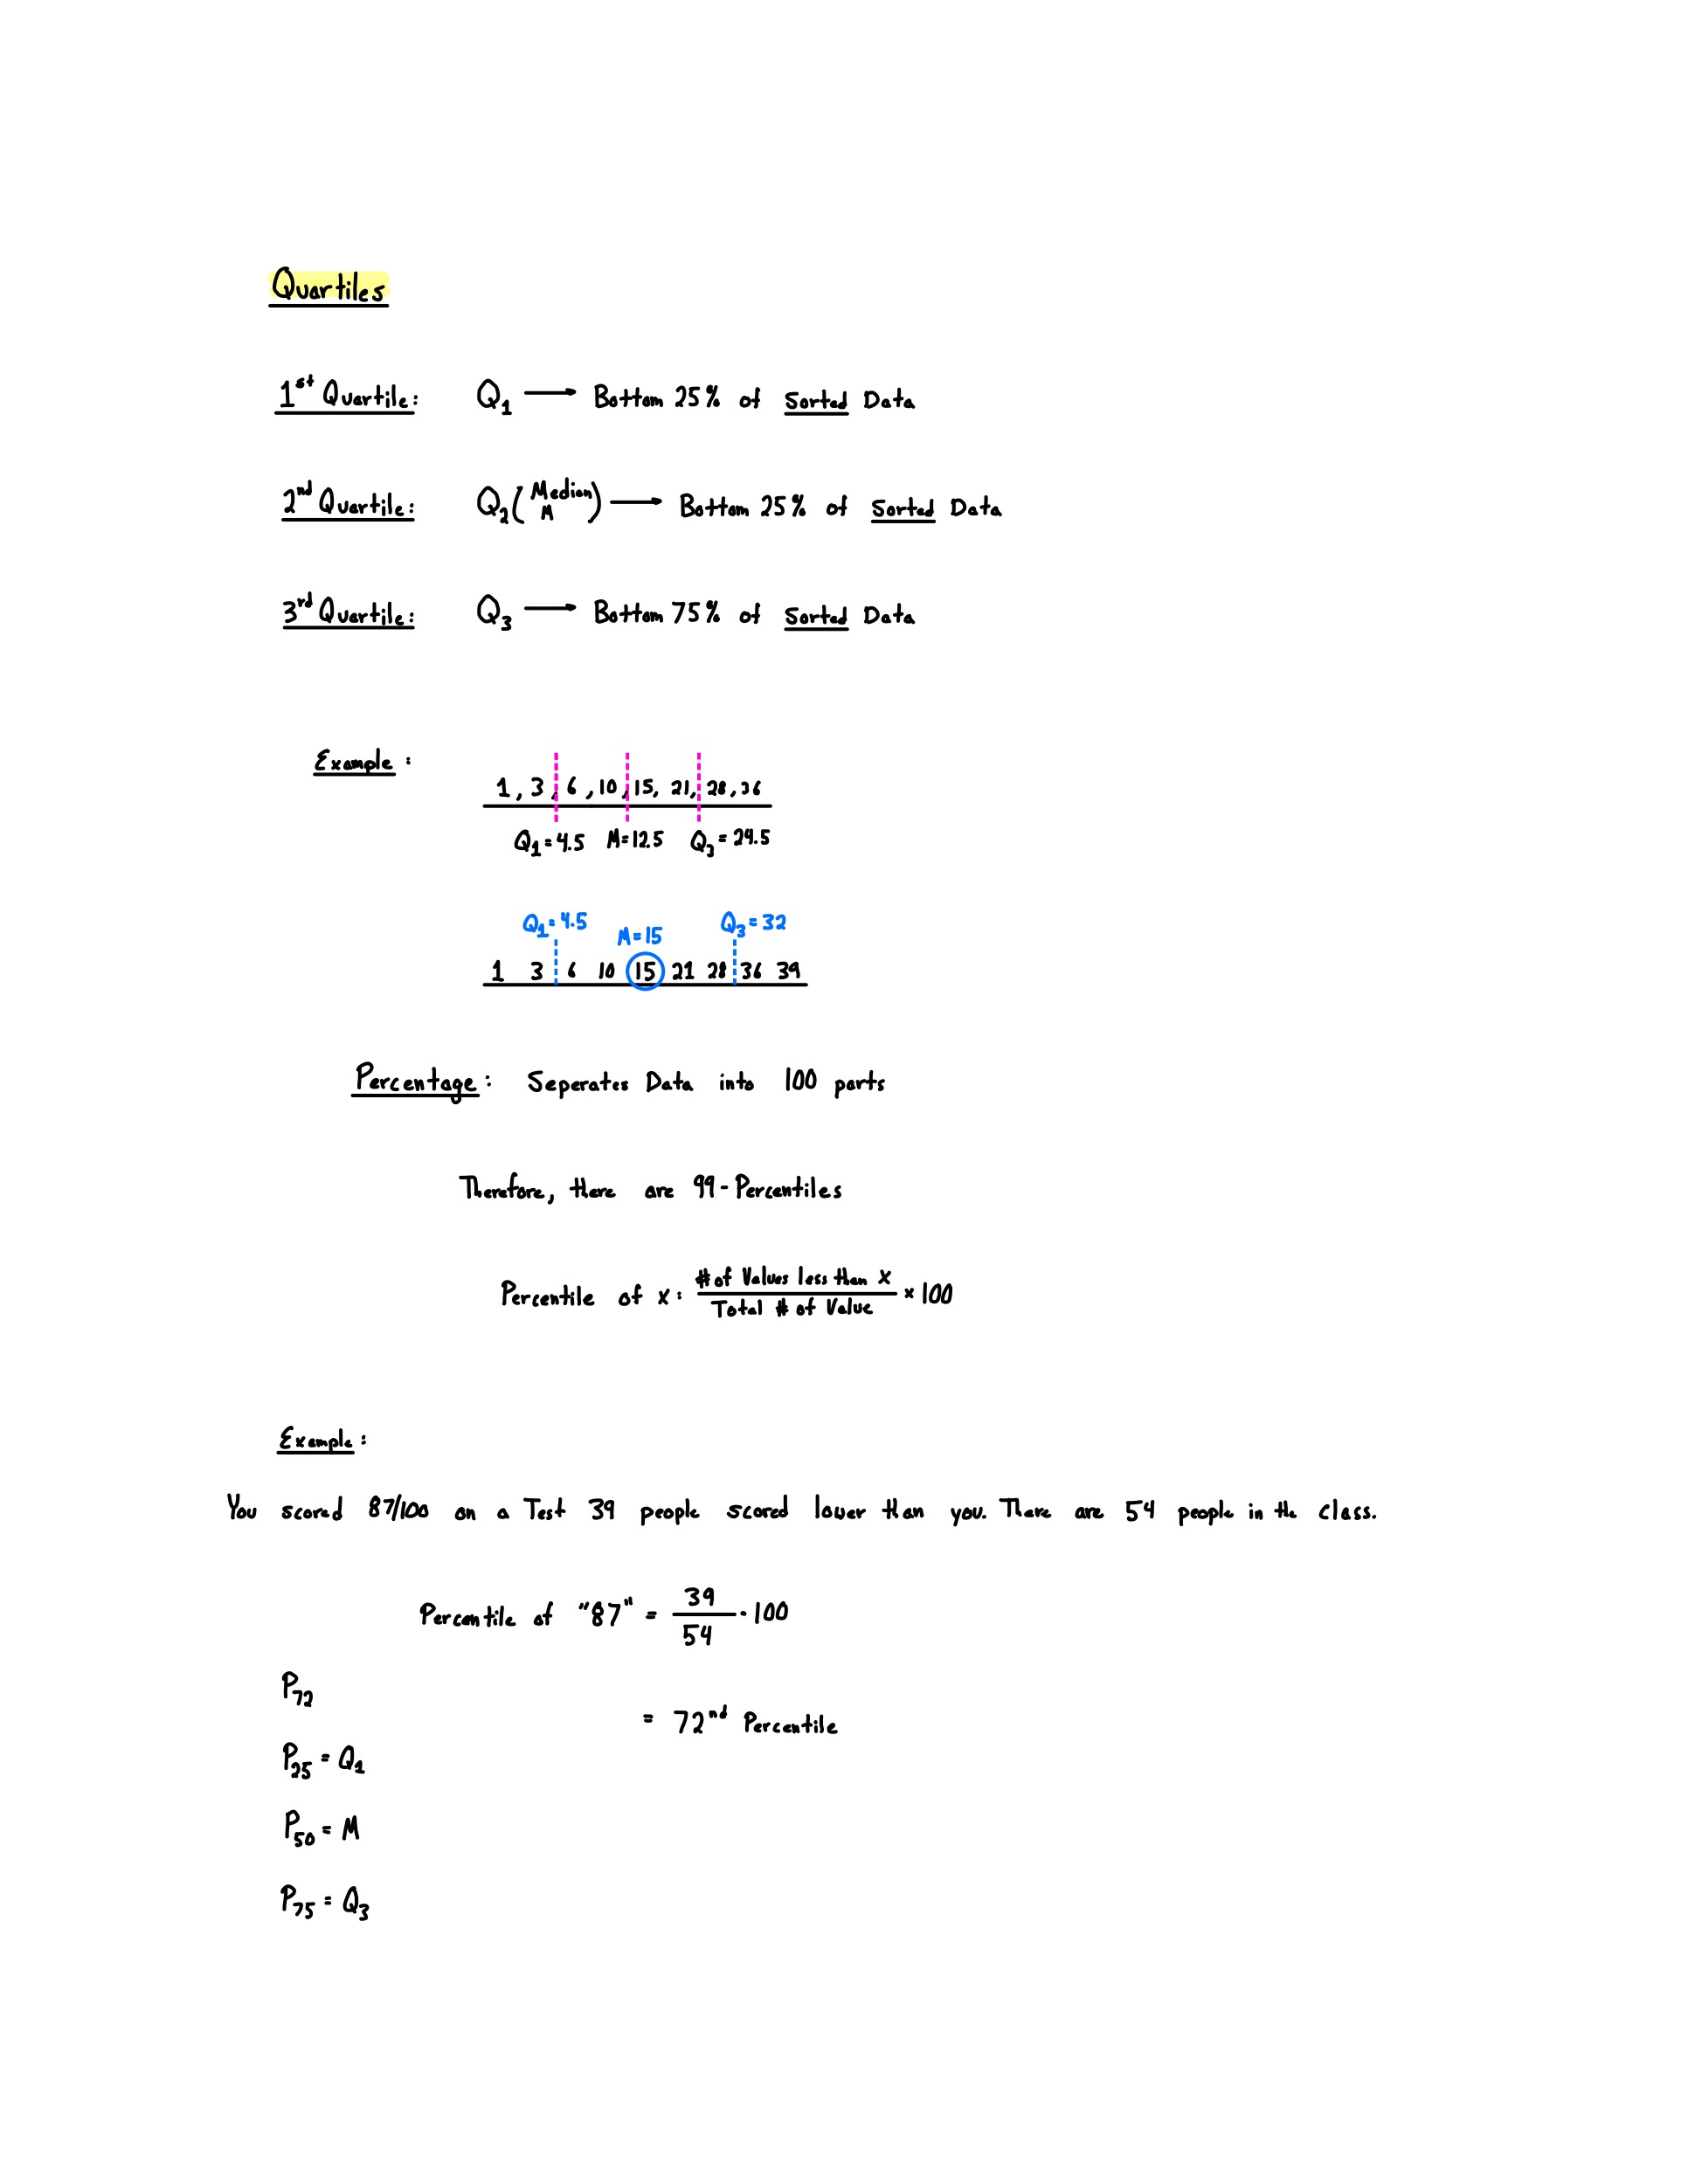 Quartiles
1st Quartile: Q1 → Bottom 25% of Sorted Data
2nd Quartile: Q2 (Median M) → Bottom 25% of Sorted Data
3rd Quartile: Q3 → Bottom 75% of Sorted Data
Example:
1, 3, 6, 10, 15, 21, 28, 36
Q1 = 4.5 M = 12.5 Q3 = 24.5
Q1 = 4.5 M = 15 Q3 = 32
1 3 6 10 15 21 28 36 39
Percentage: Seperates Data into 100 parts
Therefore, there are 99 - Percentiles
Percentile of x: # of Values less than x / Total # of Value × 100
Example:
You scored 87/100 on a Test 39 people scored lower than you. There are 54 people in the class.
Percentile of "87" = 39/54 · 100
P72
= 72nd Percentile
P25 = Q1
P50 = M
P75 = Q3